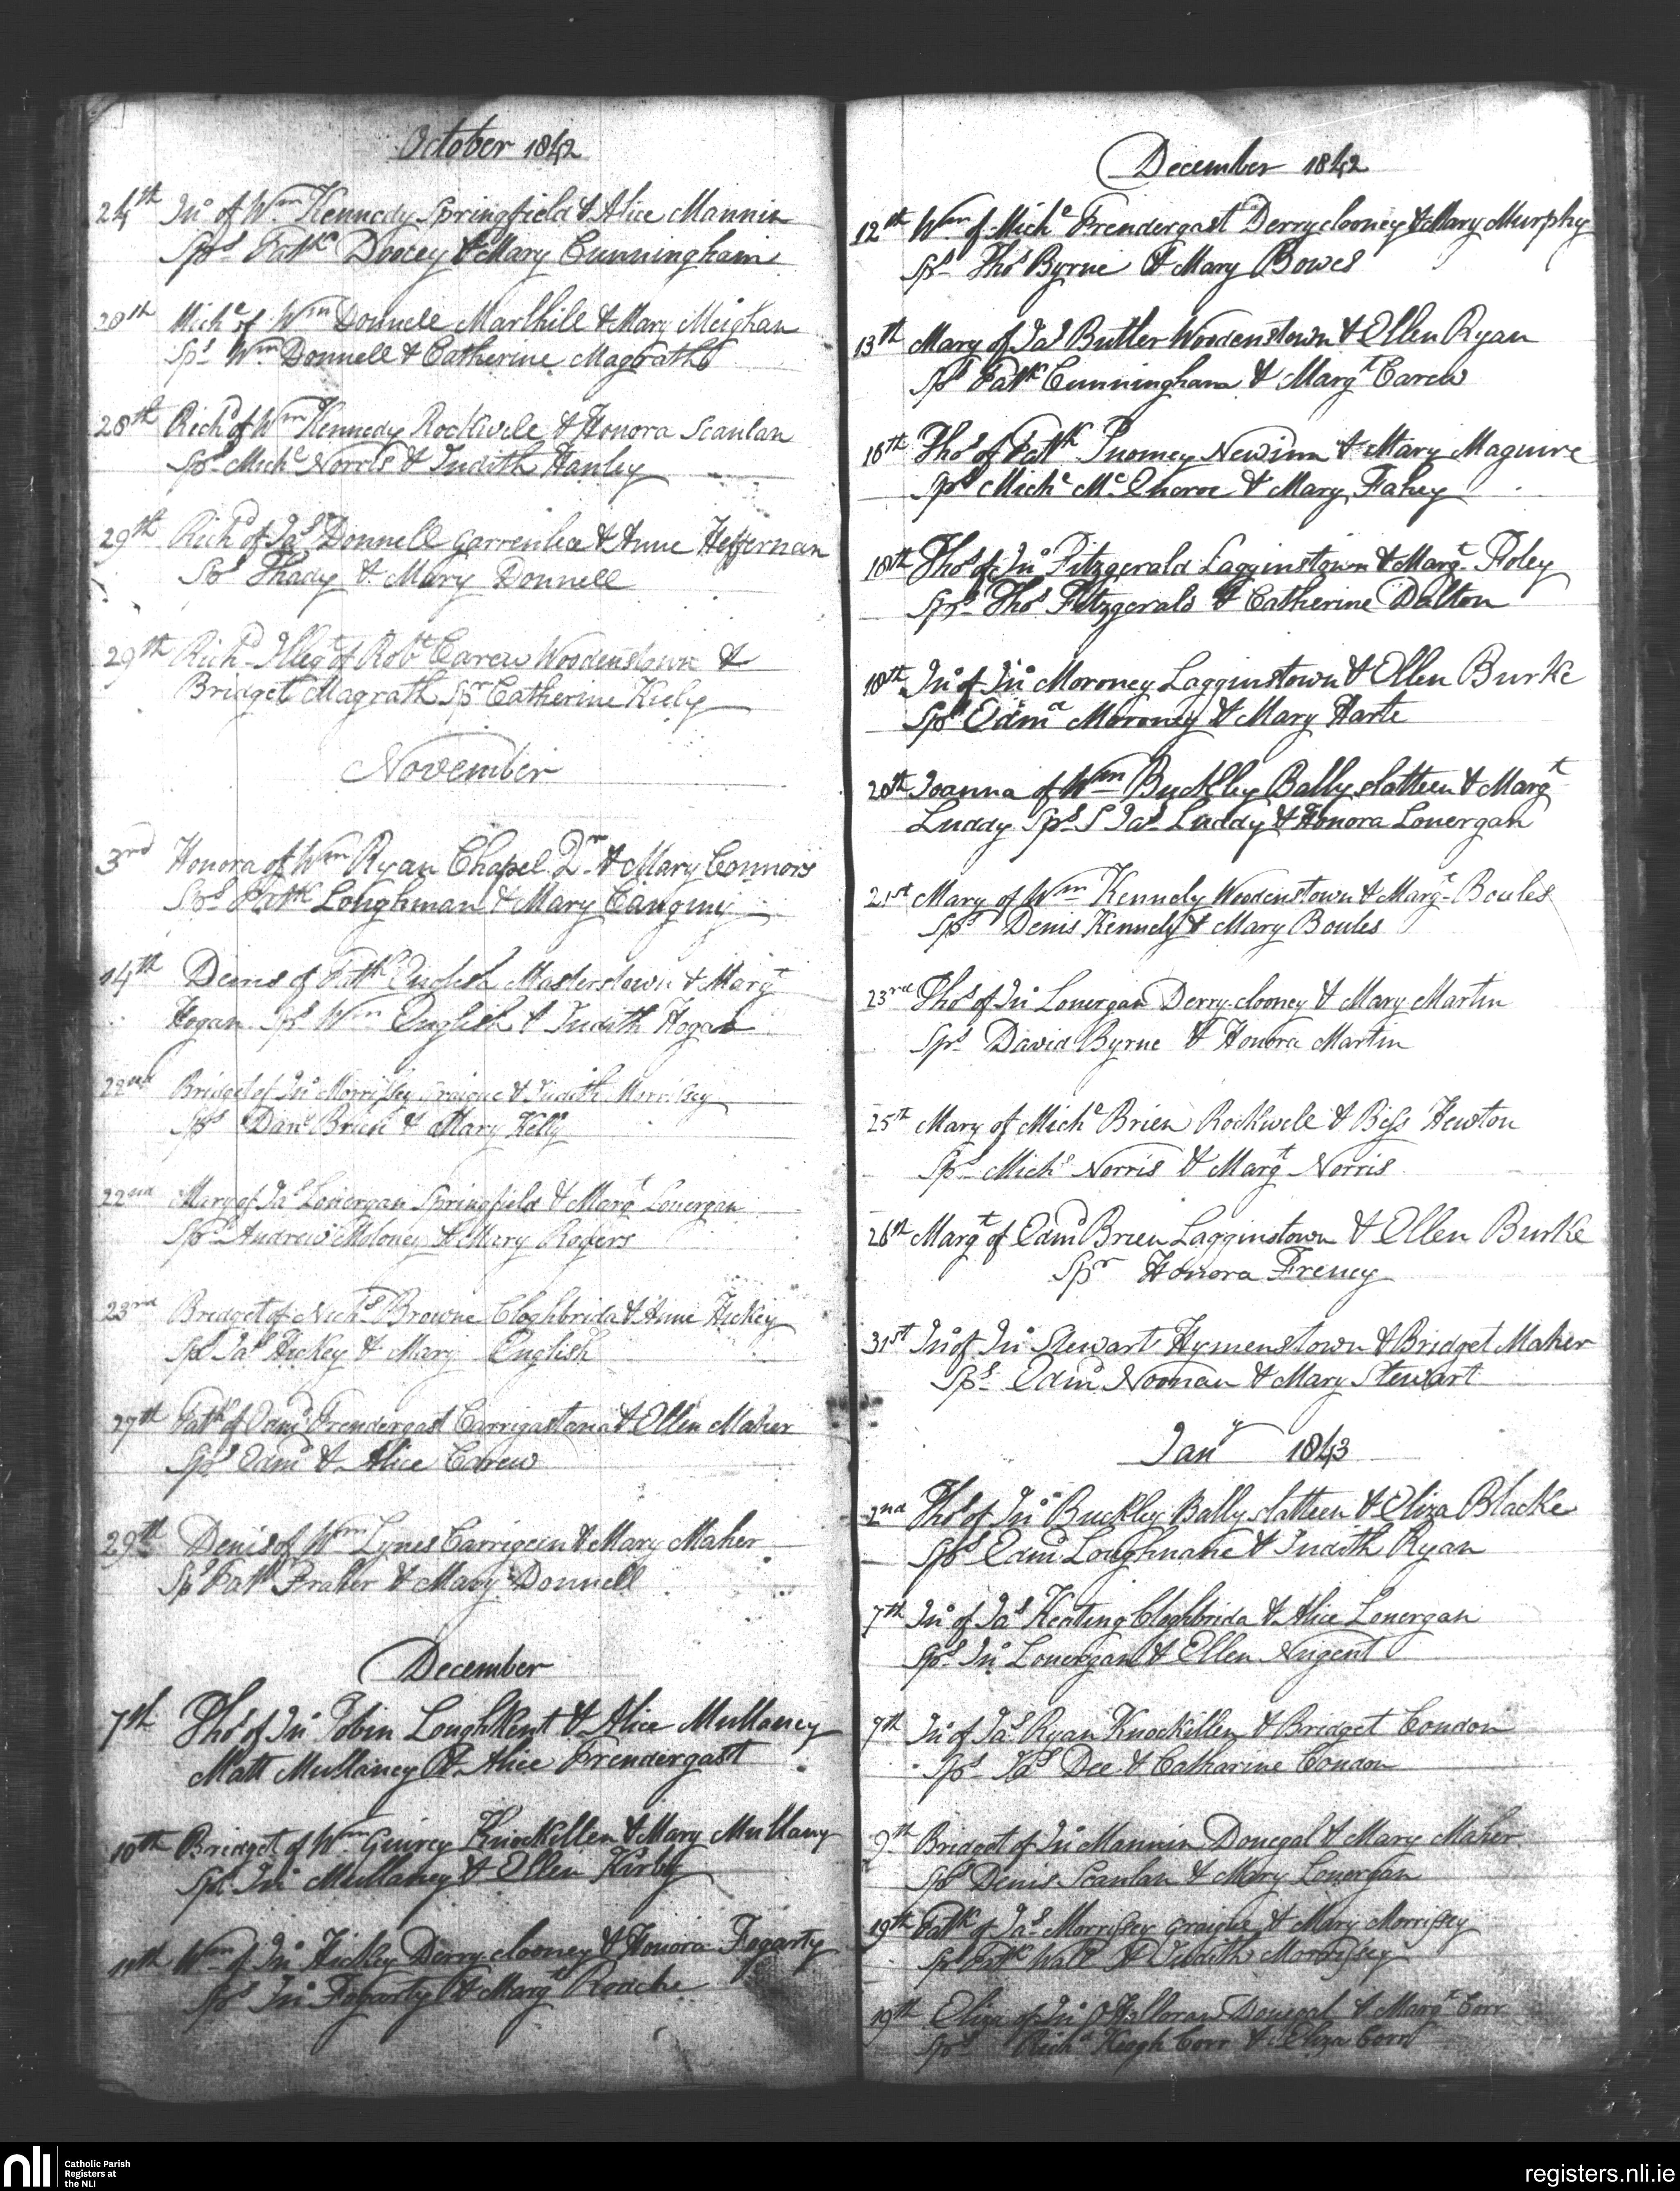 October 1842
24th Jno of Wm Kennedy Springfield & Alice Mannin
Sprs Pattk Doocey & Mary Cunningham
28th Michl of Wm Donnell Marlhill & Mary Meighan
Sprs Wm Donnell & Catherine Magrath
28th Richd of Wm Kennedy Rockwell & Honora Scanlan
Sprs Michl Norris & Judith Hanley
29th Richd of Jas Donnell Garrenlea & Anne Heffernan
Sprs Thady & Mary Donnell
29th Richd Illegt of Robt Carew Woodenstown &
Bridget Magrath Spr Catherine Kiely
November
3rd Honora of Wm Ryan Chapel Qr & Mary Connors
Sprs Pattk Loughman & Mary
14th Denis of Pattk English Masterstown & Margt
Hogan Sprs Wm English & Judith Hogan
22nd Bridget of Jno Morrissey Graigue & Judith Morrissey
Sprs Danl Brien & Mary Kelly
22nd Mary of Jas Lonergan Springfield & Margt Lonergan
Sprs Andrew Moloney & Mary Rogers
23rd Bridget of Nichs Browne Cloghbrida & Anne Hickey
Sprs Jas Hickey & Mary English
27th Patk of Edmd Prendergast Carrigastana & Ellen Maher
Sprs Edmd & Alice Carew
29th Denis of Wm Lynes Carrigeen & Mary Maher
Sprs Pattk & Mary Donnell
December
7th Thos of Jno Tobin Loughkent & Alice Mullaney
Matt Mullaney & Alice Prendergast
10th Bridget of Wm Guirey Knockillen & Mary Mullany
Sprs Jno Mullaney & Ellen Kirby
11th Wm of Jno Hickey Derryclooney & Honora Fogarty
Sprs Jno Fogarty & Margt Roache
December 1842
12th Wm of Michl Prendergast Derryclooney & Mary Murphy
Sprs Thos Byrne & Mary Bowes
13th Mary of Jas Butler Woodenstown & Ellen Ryan
Sprs Pattk Cunningham & Margt Carew
18th Thos of Pattk Tuomey Newinn & Mary Maguire
Sprs Michl Mc Enroe & Mary Fahey
18th Thos of Jno Fitzgerald Lagginstown & Margt Foley
Sprs Thos Fitzgerald & Catherine Dalton
18th Jno of Jno Moroney Lagginstown & Ellen Burke
Sprs Edmd Moroney & Mary Harte
20th Joanna of Wm Buckley Ballyslatteen & Margt
Luddy Sprs Jas Luddy & Honora Lonergan
21st Mary of Wm Kennedy Woodenstown & Margt Boules
Sprs Denis Kennedy & Mary Boules
23rd Thos of Jno Lonergan Derryclooney & Mary Martin
Sprs David Byrne & Honora Martin
25th Mary of Michl Brien Rockwell & Biss Hewston
Sprs Michl Norris & Margt Norris
26th Margt of Edmd Brien Lagginstown & Ellen Burke
Spr Honora Freney
31st Jno of Jno Stewart Hymenstown & Bridget Maher
Sprs Edmd Noonan & Mary Stewart
Jany 1843
2nd Thos of Jno Buckley Ballyslatteen & Eliza Blacke
Sprs Edmd Loughnane & Judith Ryan
7th Jno of Jas Keating Cloghbrida & Alice Lonergan
Sprs Jno Lonergan & Ellen Nugent
7th Jno of Jas Ryan Knockillen & Bridget Condon
Sprs Jas Dee & Catharine Condon
9th Bridget of Jno Mannin Donegal & Mary Maher
Sprs Denis Scanlan & Mary Lonergan
19th Pattk of Jas Morrissey Graigue & Mary Morrissey
Sprs Pattk Wall & Judith Morrissey
19th Eliza of Jno O Halloran Donegal & Margt Corr
Sprs Richd Keogh Corr & Eliza Corr
nli
Catholic Parish
Registers at
the NLI
registers.nli.ie